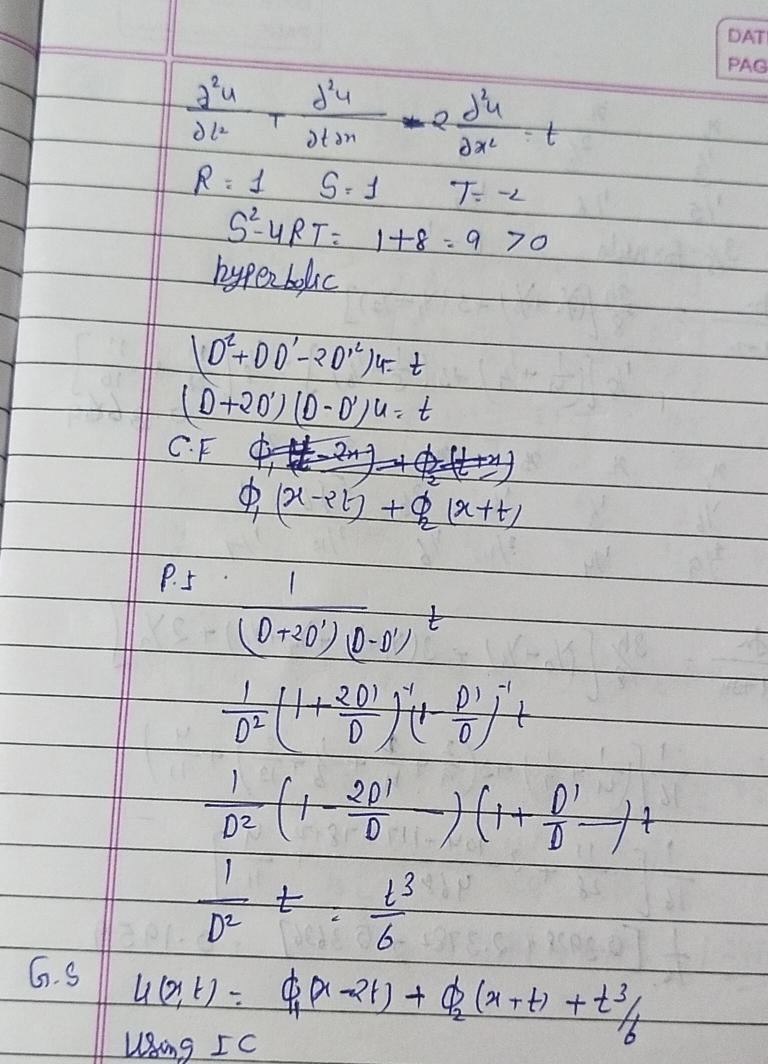 DAT
PAG
∂²u/∂t² + ∂²u/∂t∂x - 2 ∂²u/∂x² = t
R = 1 S = 1 T = -2
S² - 4RT = 1 + 8 = 9 > 0
hyperbolic
(D² + DD' - 2D'²)u = t
(D + 2D') (D - D')u = t
C.F ϕ₁ (t - 2x) + ϕ₂ (t + x)
ϕ₁ (x - 2t) + ϕ₂ (x + t)
P.I. 1/((D + 2D') (D - D')) t
1/D² (1 + 2D'/D)⁻¹ (1 - D'/D)⁻¹ t
1/D² (1 - 2D'/D —) (1 + D'/D —) t
1/D² t = t³/6
G.S u(x,t) = ϕ₁(x - 2t) + ϕ₂ (x + t) + t³/6
Using IC